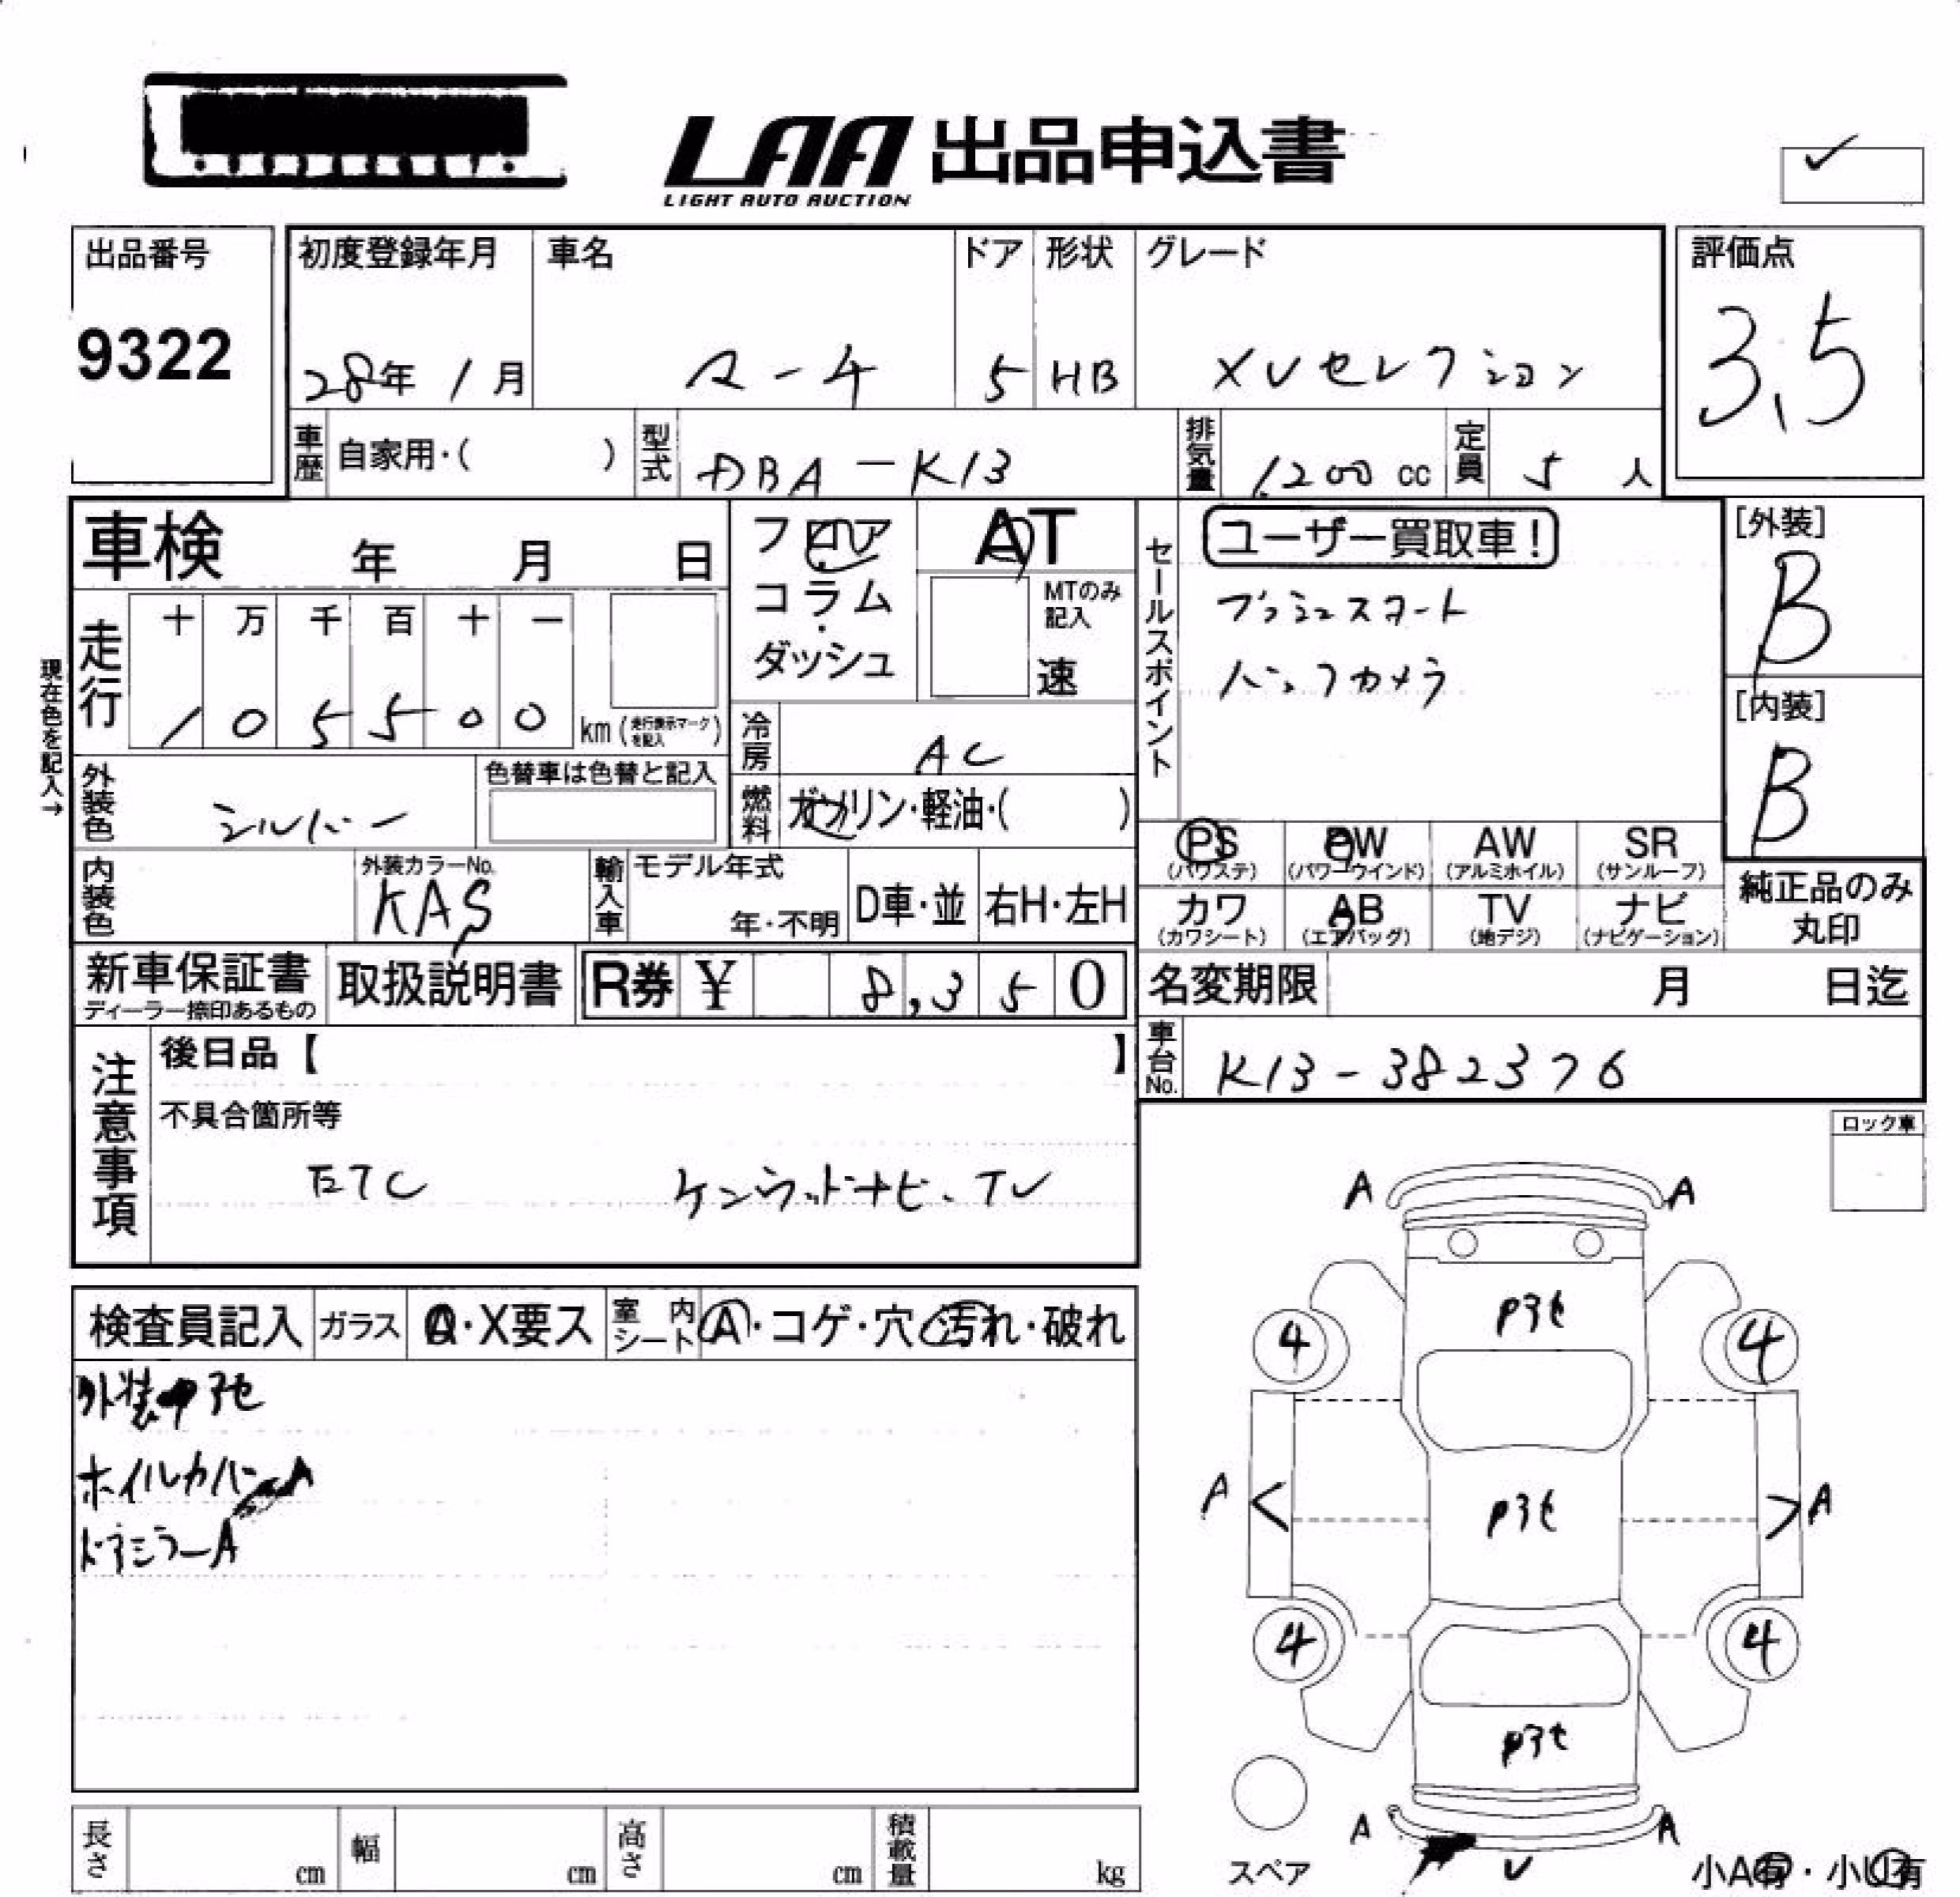 LAA 出品申込書
LIGHT AUTO AUCTION
出品番号
9322
初度登録年月
28年 1月
車名
マーチ
ドア
5
形状
HB
グレード
XVセレクション
評価点
3.5
車歴
自家用・( )
型式
DBA-K13
排気量
1,200 cc
定員
5 人
車検 年 月 日
フロア
コラム
・
ダッシュ
AT
MTのみ
記入
速
セールスポイント
ユーザー買取車!
プッシュスタート
バックカメラ
[外装]
B
[内装]
B
現在色を記入→
走行
十 万 千 百 十 一
1 0 5 5 0 0 km (走行表示マークを記入)
冷房
AC
燃料
ガソリン・軽油・( )
外装色
シルバー
色替車は色替と記入
内装色
外装カラーNo.
KAS
輸入車
モデル年式
年・不明
D車・並
右H・左H
PS
(パワステ)
PW
(パワーウインド)
AW
(アルミホイル)
SR
(サンルーフ)
カワ
(カワシート)
AB
(エアバッグ)
TV
(地デジ)
ナビ
(ナビゲーション)
純正品のみ
丸印
新車保証書
ディーラー捺印あるもの
取扱説明書
R券 ¥ 8,350
名変期限 月 日迄
車台No.
K13-382376
注意事項
後日品【 】
不具合箇所等
ETC ケンウッドナビ、TV
ロック車
検査員記入
ガラス
A・X要ス
室内シート
A・コゲ・穴・汚れ・破れ
外装中アセ
ホイルカバーA
ドアミラーA
A A
アセ
4 4
A < アセ > A
4 4
アセ
A A
U
スペア
小A有・小U有
長さ cm
幅 cm
高さ cm
積載量 kg